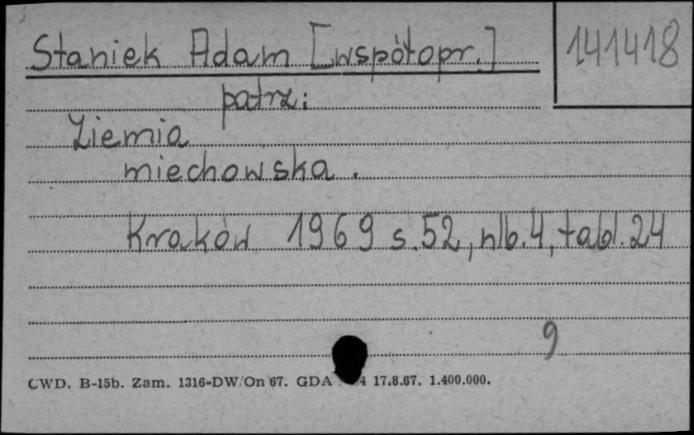 Staniek Adam [współopr.]
141418
patrz:
Ziemia
miechowska.
Kraków 1969 s.52, nlb.4, tabl.24
9
CWD. B-15b. Zam. 1316-DW/On 67. GDA 4 17.8.67. 1.400.000.